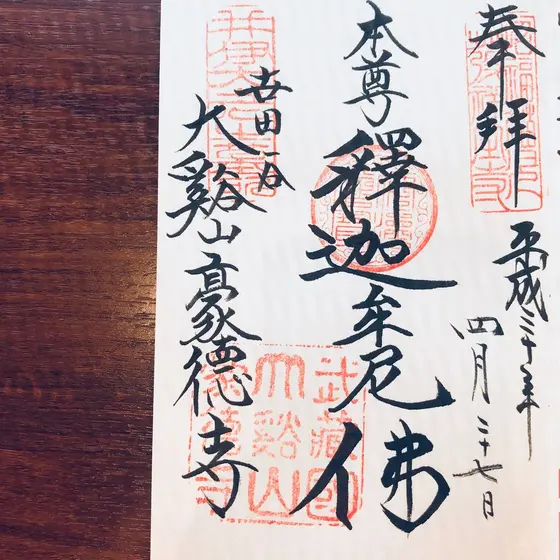 奉拝
平成三十年
四月二十七日
本尊
釋迦牟尼佛
世田谷
大谿山豪德寺
武藏國
大谿山
豪德寺